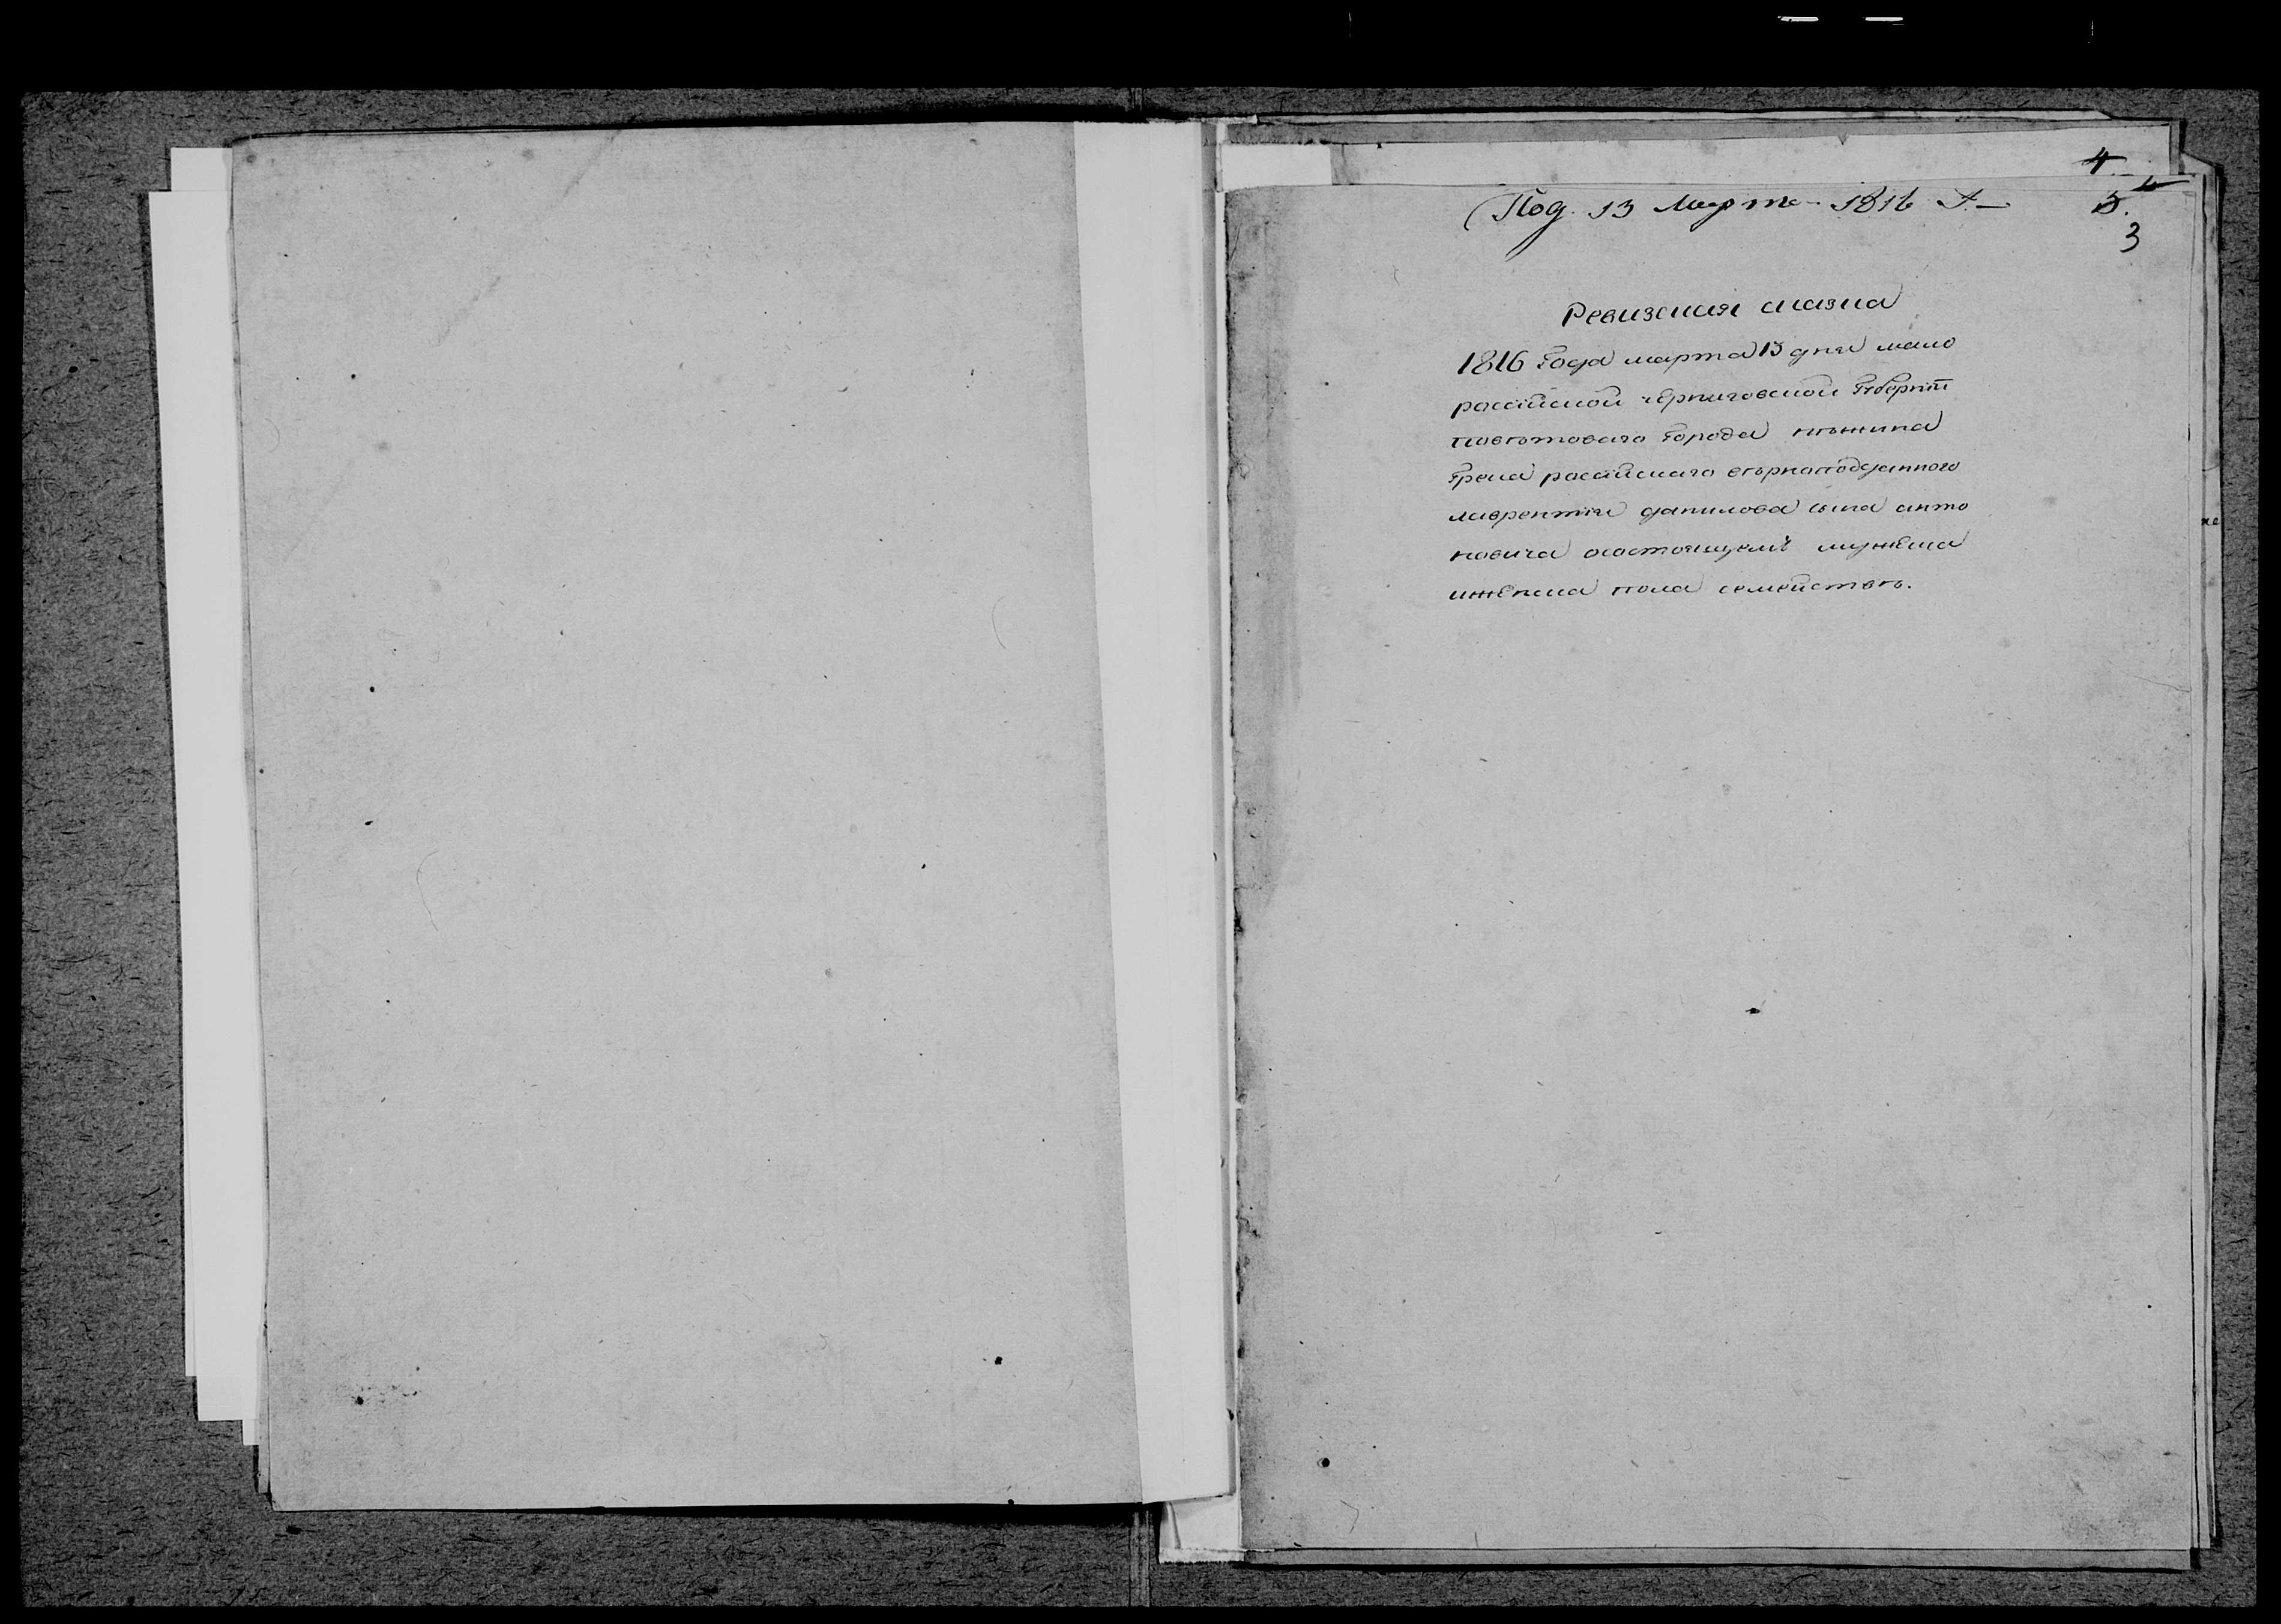 4
5.
3
Под. 13 Марта 1816 г.
Ревизская сказка
1816 года марта 13 дня мало
российской черниговской губернїи
повѣтоваго города нѣжина
грека российскаго вѣрноподданного
лаврентия данилова сына анто
новича осостоящемъ мужеска
иженска пола семействѣ.